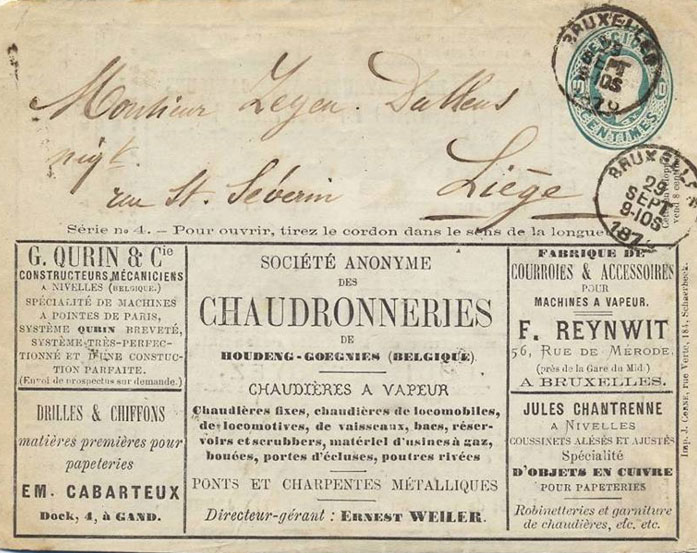 BRUXELLES
29
SEPT
9-10S
187
CENTIMES
BRUXELLES
29
SEPT
9-10S
187
Monsieur Zegen. Dallens
nég.t
rue St. Séverin Liège
Série no 4. – Pour ouvrir, tirez le cordon dans le sens de la longueu
vend 8 centim
G. QURIN & Cie
CONSTRUCTEURS, MÉCANICIENS
A NIVELLES (BELGIQUE.)
SPÉCIALITÉ DE MACHINES
A POINTES DE PARIS,
SYSTÈME QURIN BREVETÉ,
SYSTÈME TRÈS-PERFEC-
TIONNÉ ET D'UNE CONSTUC-
TION PARFAITE.
(Envoi de prospectus sur demande.)
DRILLES & CHIFFONS
matières premières pour
papeteries
EM. CABARTEUX
Dock, 4, à GAND.
SOCIÉTÉ ANONYME
DES
CHAUDRONNERIES
DE
HOUDENG-GOEGNIES (BELGIQUE)
CHAUDIÈRES A VAPEUR
Chaudières fixes, chaudières de locomobiles,
de locomotives, de vaisseaux, bacs, réser-
voirs et scrubbers, matériel d'usines à gaz,
bouées, portes d'écluses, poutres rivées
PONTS ET CHARPENTES MÉTALLIQUES
Directeur-gérant : ERNEST WEILER.
FABRIQUE DE
COURROIES & ACCESSOIRES
POUR
MACHINES A VAPEUR.
F. REYNWIT
56, RUE DE MÉRODE,
(près de la Gare du Midi)
A BRUXELLES.
JULES CHANTRENNE
A NIVELLES
COUSSINETS ALÉSÉS ET AJUSTÉS
Spécialité
D'OBJETS EN CUIVRE
POUR PAPETERIES
Robinetteries et garniture
de chaudières, etc. etc.
Imp. J. CORNE, rue Verte, 184, Schaerbeek.